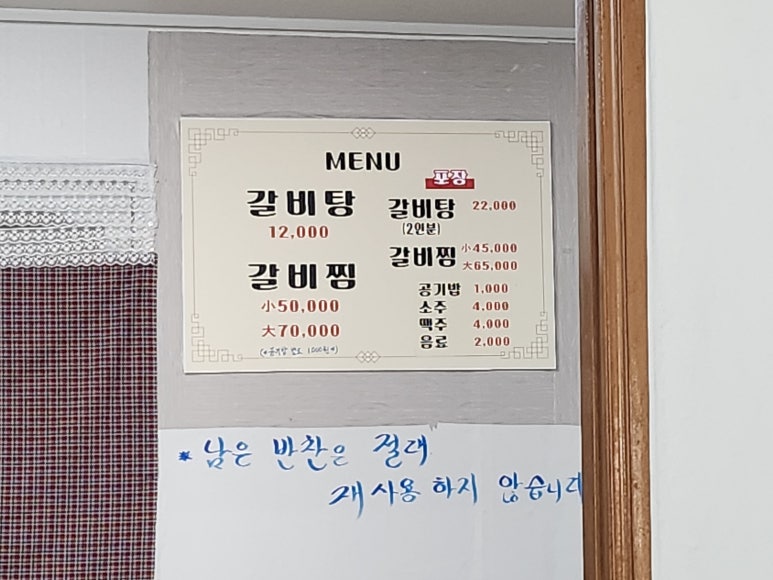 MENU
갈비탕
12,000
갈비찜
小50,000
大70,000
(*공기밥 별도 1000원*)
포장
갈비탕 22,000
(2인분)
갈비찜 小45,000
大65,000
공기밥 1,000
소주 4,000
맥주 4,000
음료 2,000
* 남은 반찬은 절대
재사용 하지 않습니다